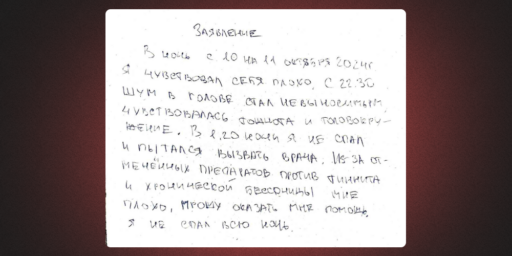 ЗАЯВЛЕНИЕ
В НОЧЬ С 10 НА 11 ОКТЯБРЯ 2024Г
Я ЧУВСТВОВАЛ СЕБЯ ПЛОХО. С 22.30
ШУМ В ГОЛОВЕ СТАЛ НЕВЫНОСИМЫМ,
ЧУВСТВОВАЛАСЬ ТОШНОТА И ГОЛОВОКРУ-
ЖЕНИЕ. В 1.20 НОЧИ Я НЕ СПАЛ
И ПЫТАЛСЯ ВЫЗВАТЬ ВРАЧА. ИЗ-ЗА ОТ-
МЕНЁННЫХ ПРЕПАРАТОВ ПРОТИВ ТИННИТА
И ХРОНИЧЕСКОЙ БЕССОННИЦЫ МНЕ
ПЛОХО, ПРОШУ ОКАЗАТЬ МНЕ ПОМОЩЬ.
Я НЕ СПАЛ ВСЮ НОЧЬ.